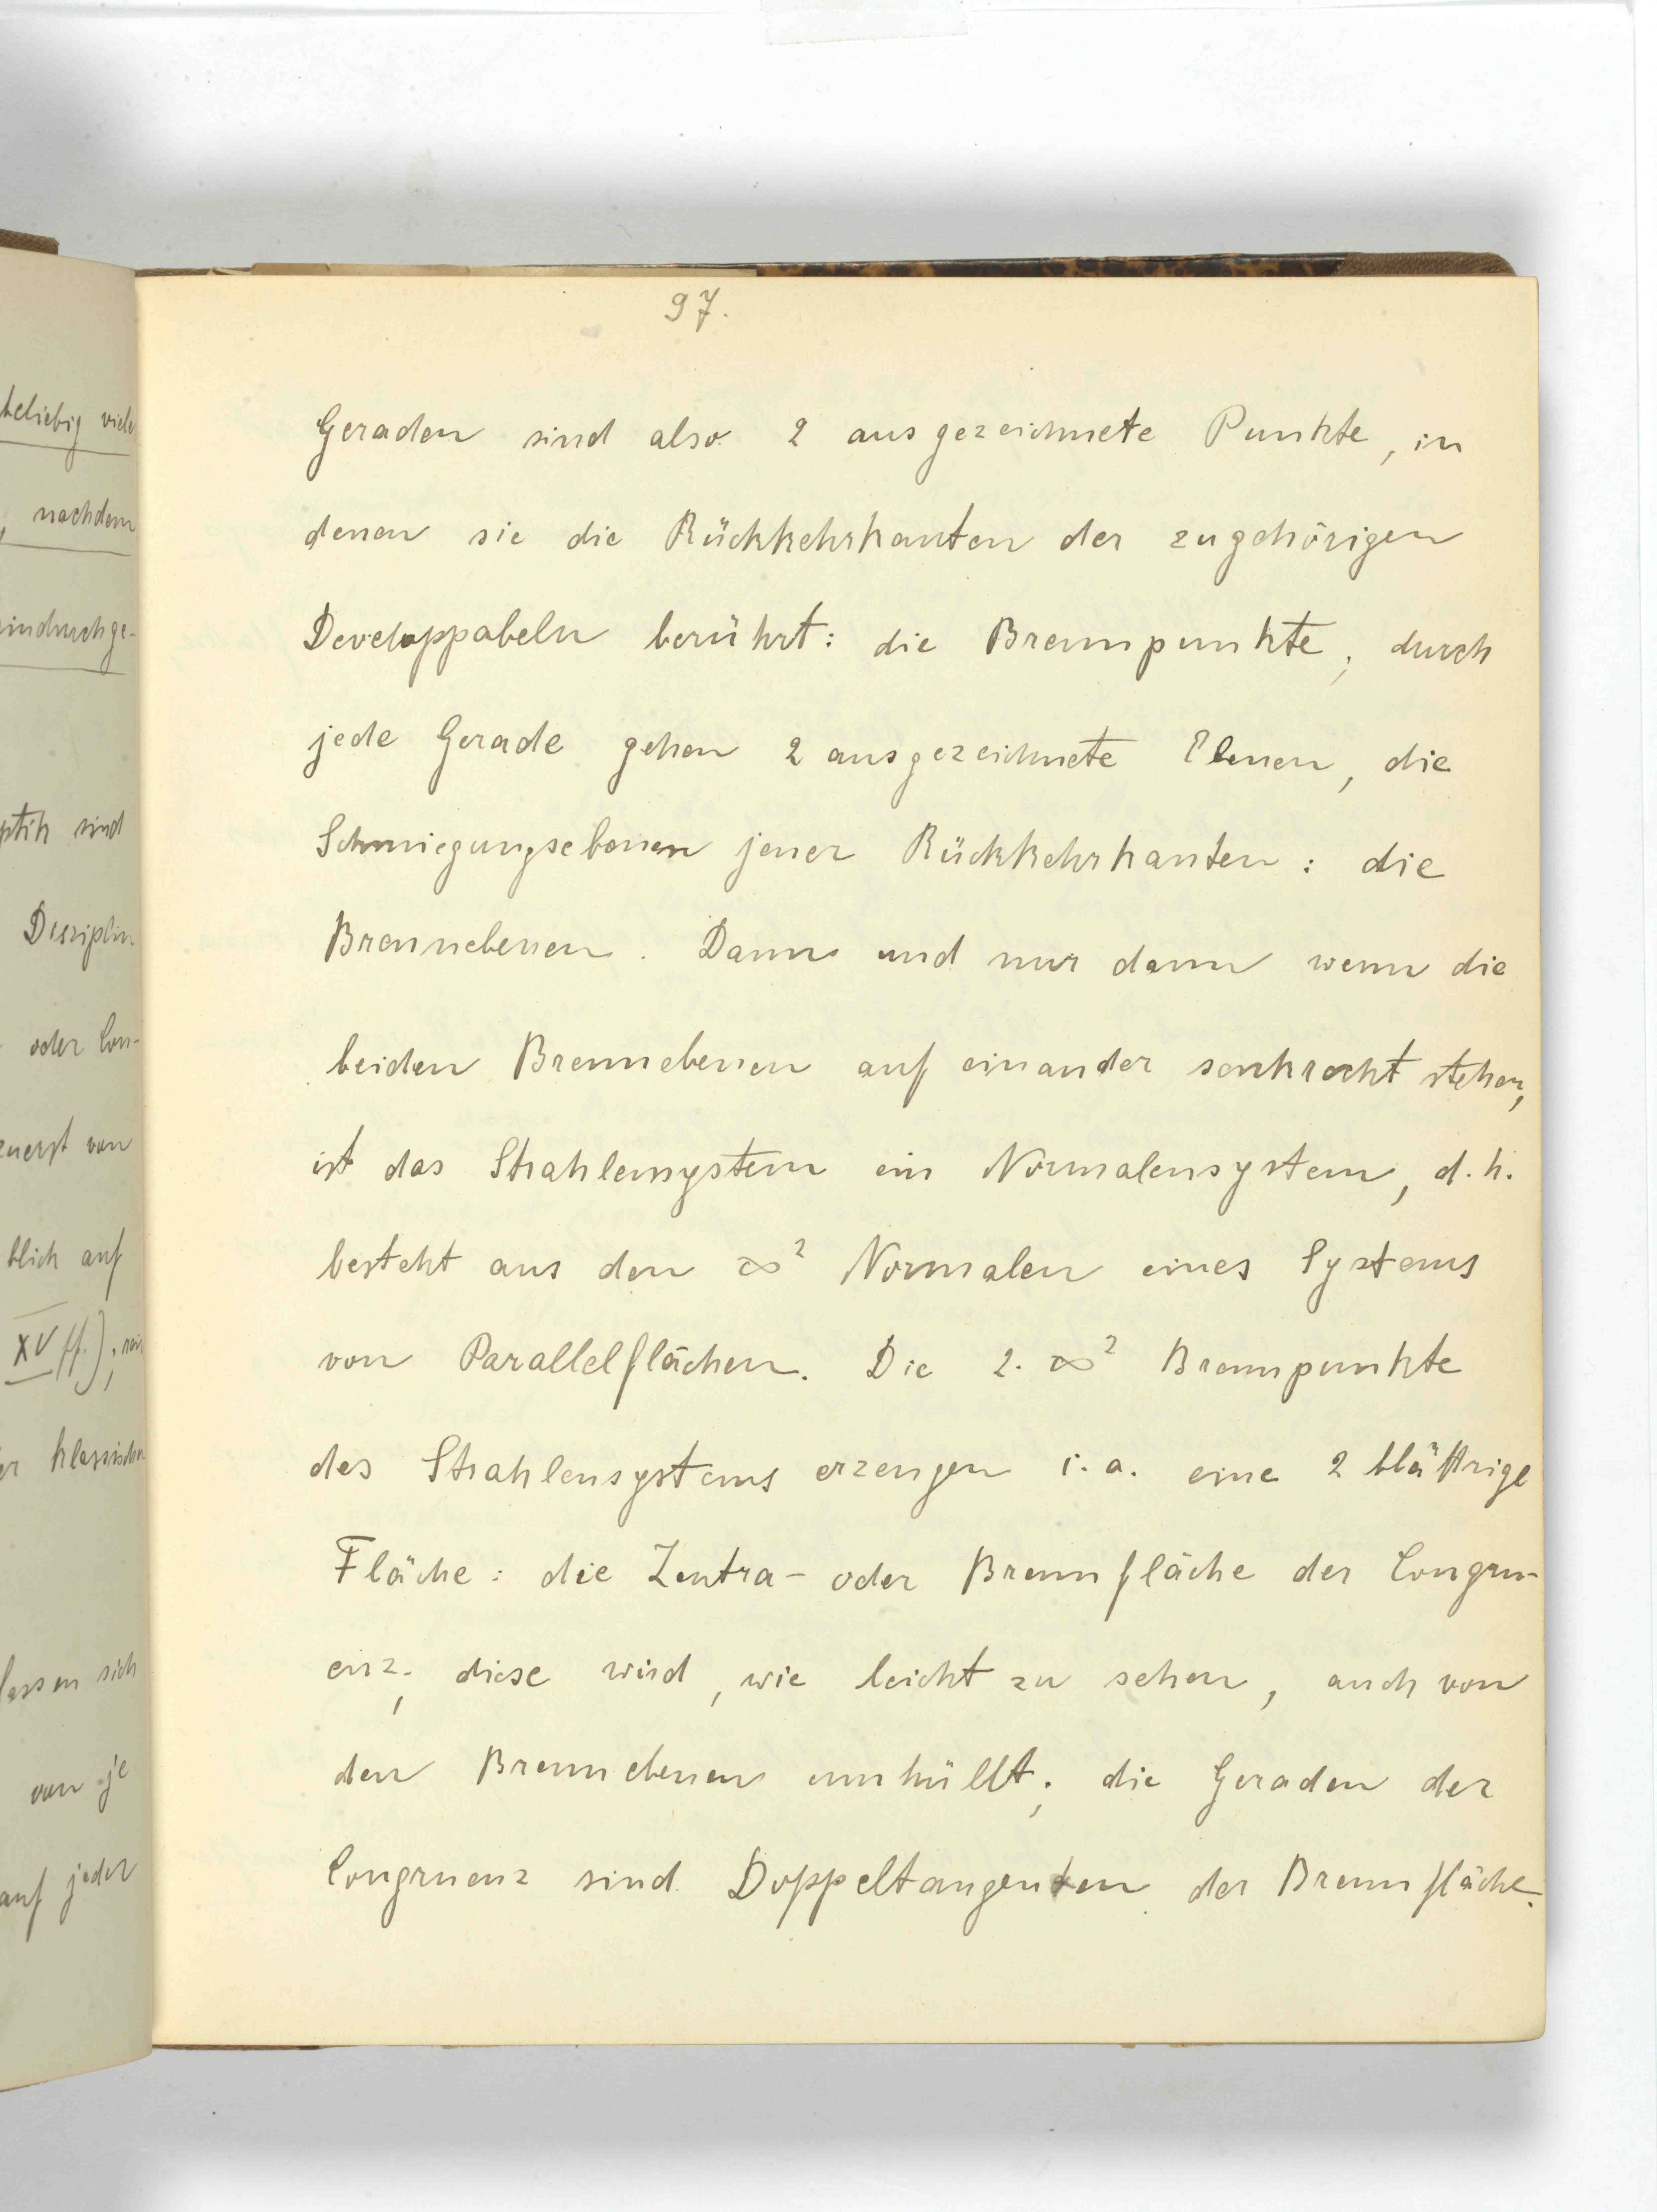 97.
beliebig viele
, nachdem
hindurchge-
ptik sind
Disziplin
oder Con-
zuerst von
blick auf
XV ff.);
er klassischen
lassen sich
von je
auf jeder
Geraden sind also 2 ausgezeichnete Punkte, in
denen sie die Rückkehrkanten der zugehörigen
Developpabeln berührt: die Brennpunkte; durch
jede Gerade gehen 2 ausgezeichnete Ebenen, die
Schmiegungsebenen jener Rückkehrkanten: die
Brennebenen. Dann und nur dann wenn die
beiden Brennebenen auf einander senkrecht stehen,
ist das Strahlensystem ein Normalensystem, d.h.
besteht aus den ∞² Normalen eines Systems
von Parallelflächen. Die 2·∞² Brennpunkte
des Strahlensystems erzeugen i.a. eine 2 blättrige
Fläche: die Zentra- oder Brennfläche der Congru-
enz; diese wird, wie leicht zu sehen, auch von
den Brennebenen umhüllt; die Geraden der
Congruenz sind Doppeltangenten der Brennfläche.